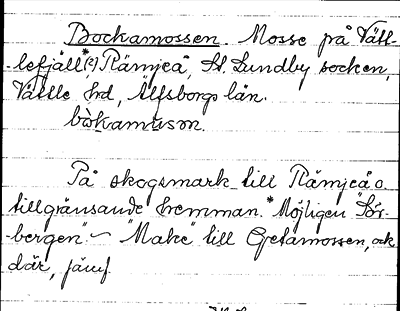 Bockamossen. Mosse på Vätt-
lefjäll*(2) Rämjeå, St. Lundby socken,
Vättle hrd, Älfsborgs län.
bòkamusən.
På skogsmark till Rämjeå o.
tillgränsande hemman. *Möjligen "Sör-
bergen" ~ "Make" till Getamossen, ock
där, jämf.